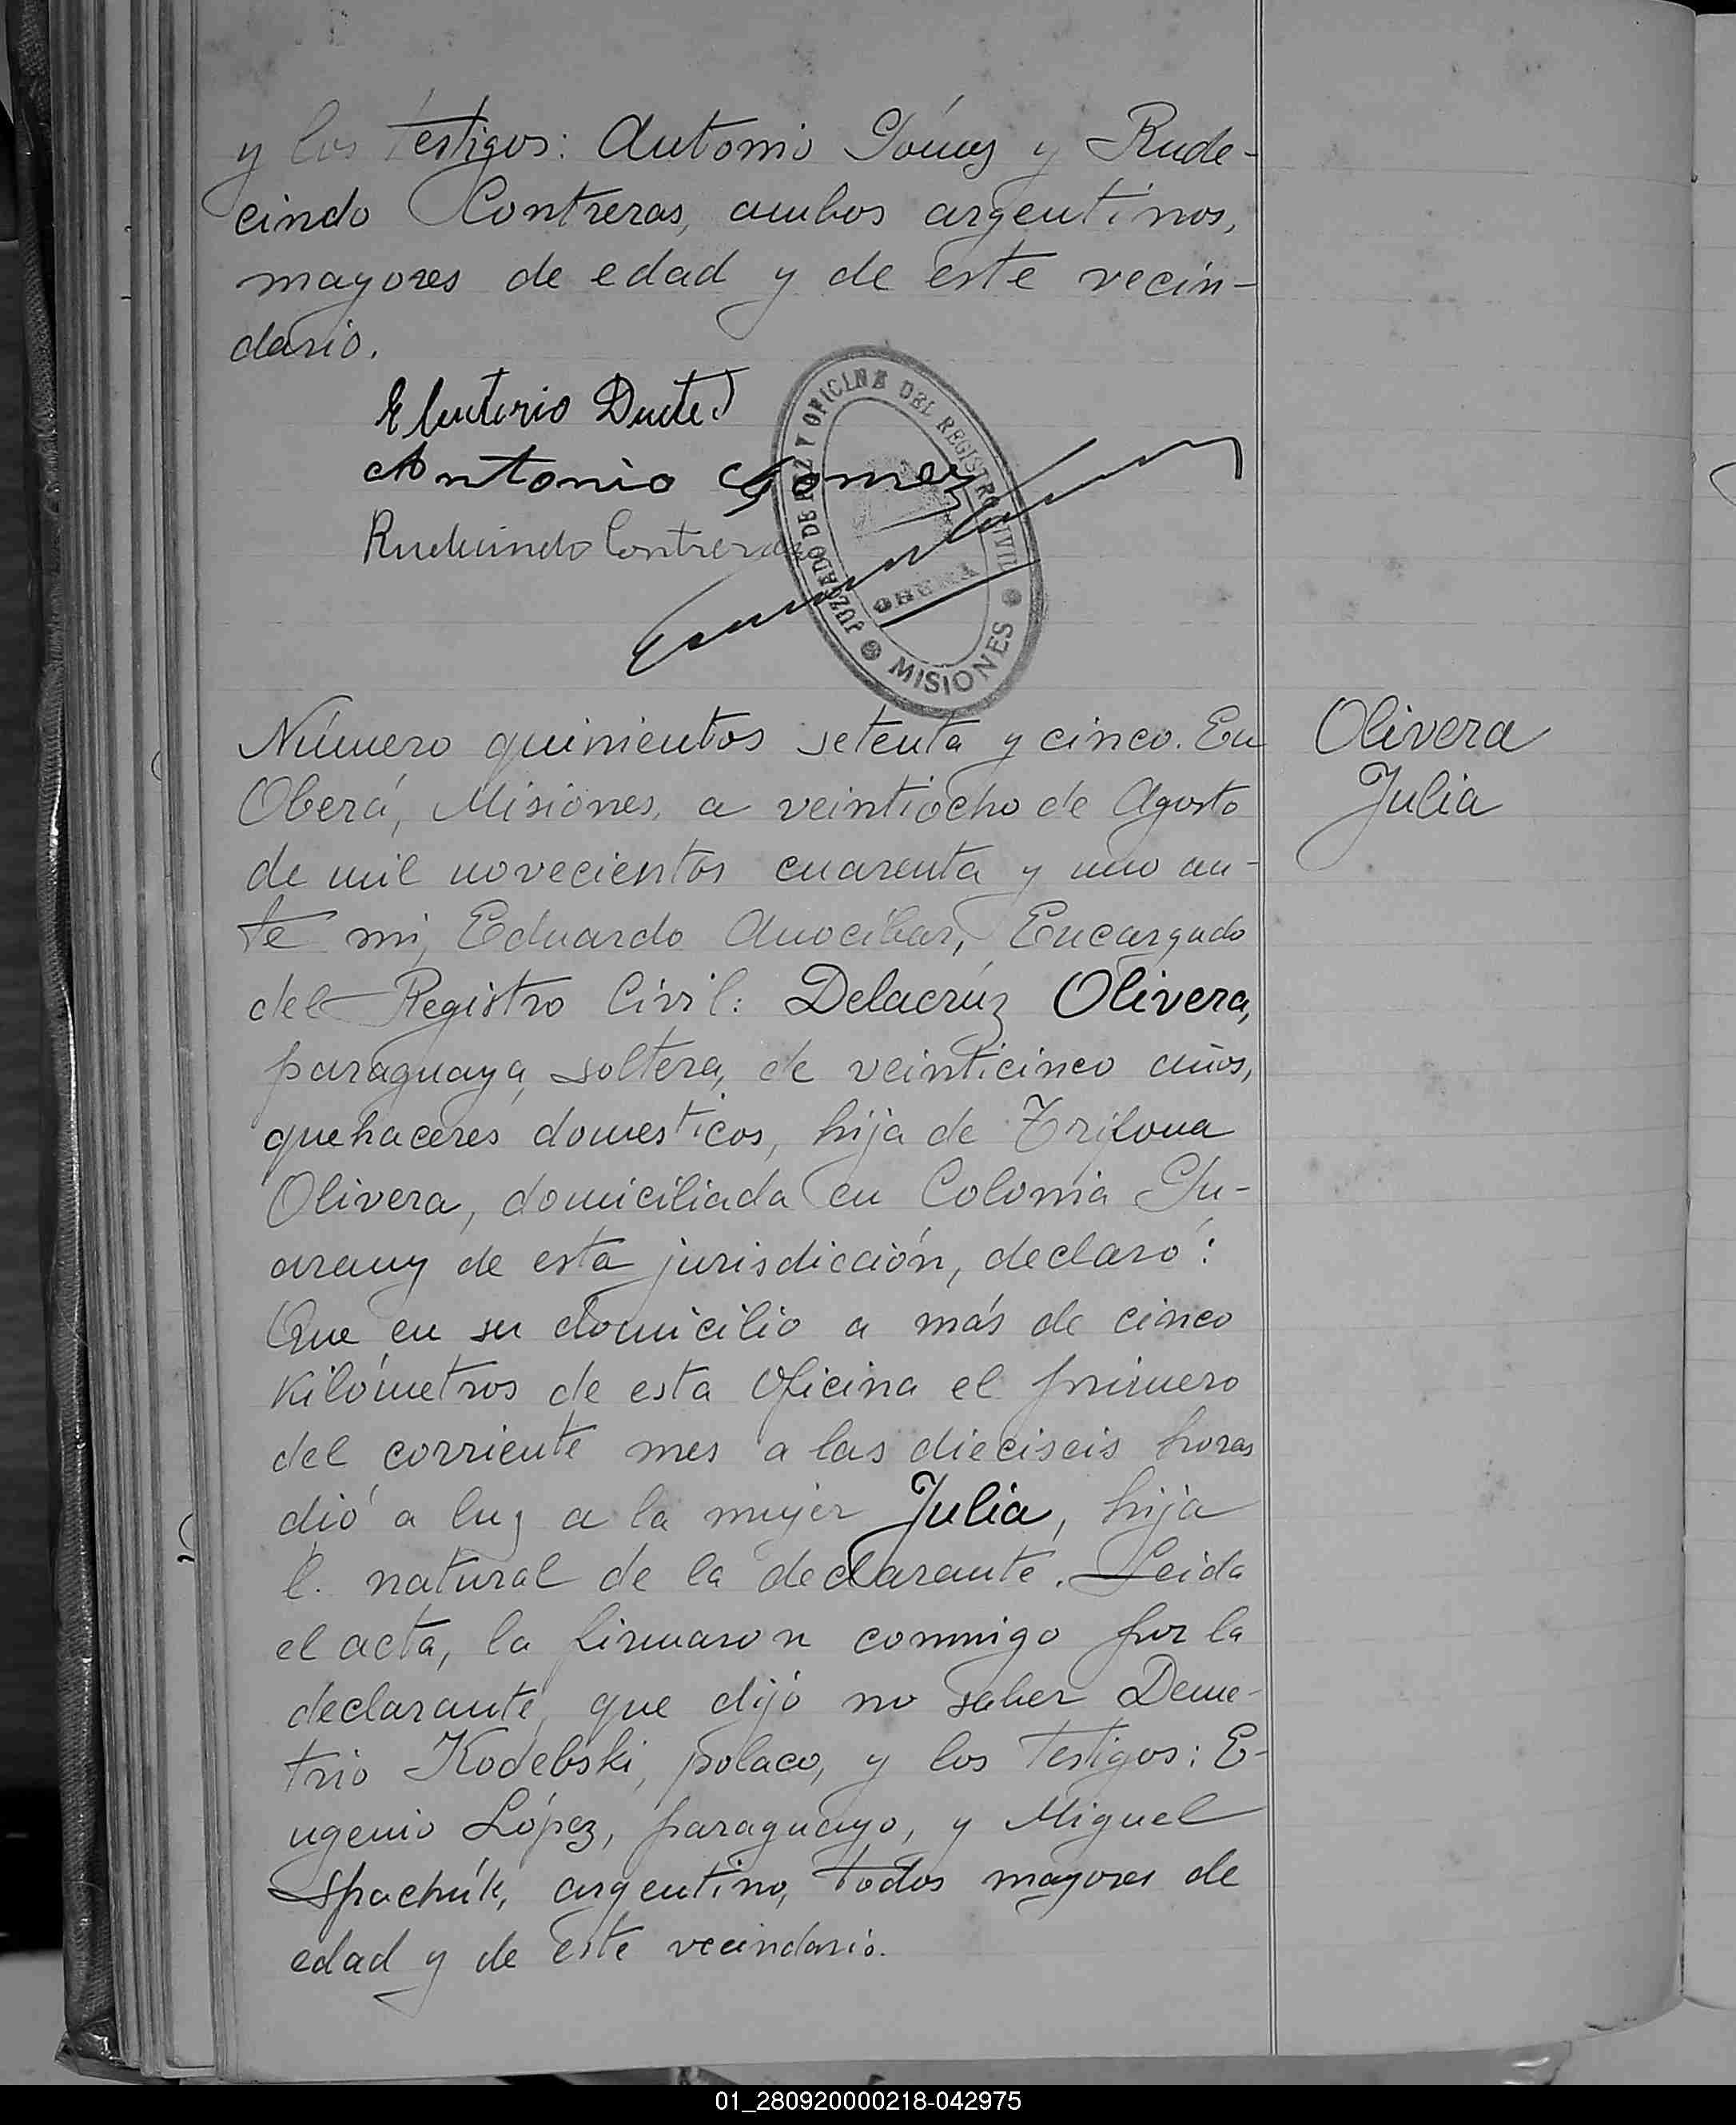 y los testigos: Antonio Gómez y Rude-
cindo Contreras, ambos argentinos,
mayores de edad y de este vecin-
dario.
Eleuterio Duarte
Antonio Gomez
Rudecindo Contreras
JUZGADO DE PAZ Y OFICINA DEL REGISTRO CIVIL
OBERA
MISIONES
Número quinientos setenta y cinco. En
Oberá, Misiones, a veintiocho de Agosto
de mil novecientos cuarenta y uno an-
te mi, Eduardo Anocibar, Encargado
del Registro Civil: Delacrúz Olivera,
paraguaya, soltera, de veinticinco años,
quehaceres domesticos, hija de Trifona
Olivera, domiciliada en Colonia Gu-
arany de esta jurisdicción, declaró:
Que en su domicilio a más de cinco
kilómetros de esta Oficina el primero
del corriente mes a las dieciseis horas
dió a luz a la mujer Julia, hija
l. natural de la declarante. Leida
el acta, la firmaron conmigo por la
declarante, que dijó no saber Deme-
trio Kodebski, polaco, y los testigos: E-
ugenio López, paraguayo, y Miguel
Spachúk, argentino, todos mayores de
edad y de este vecindario.
Olivera
Julia
01_280920000218-042975